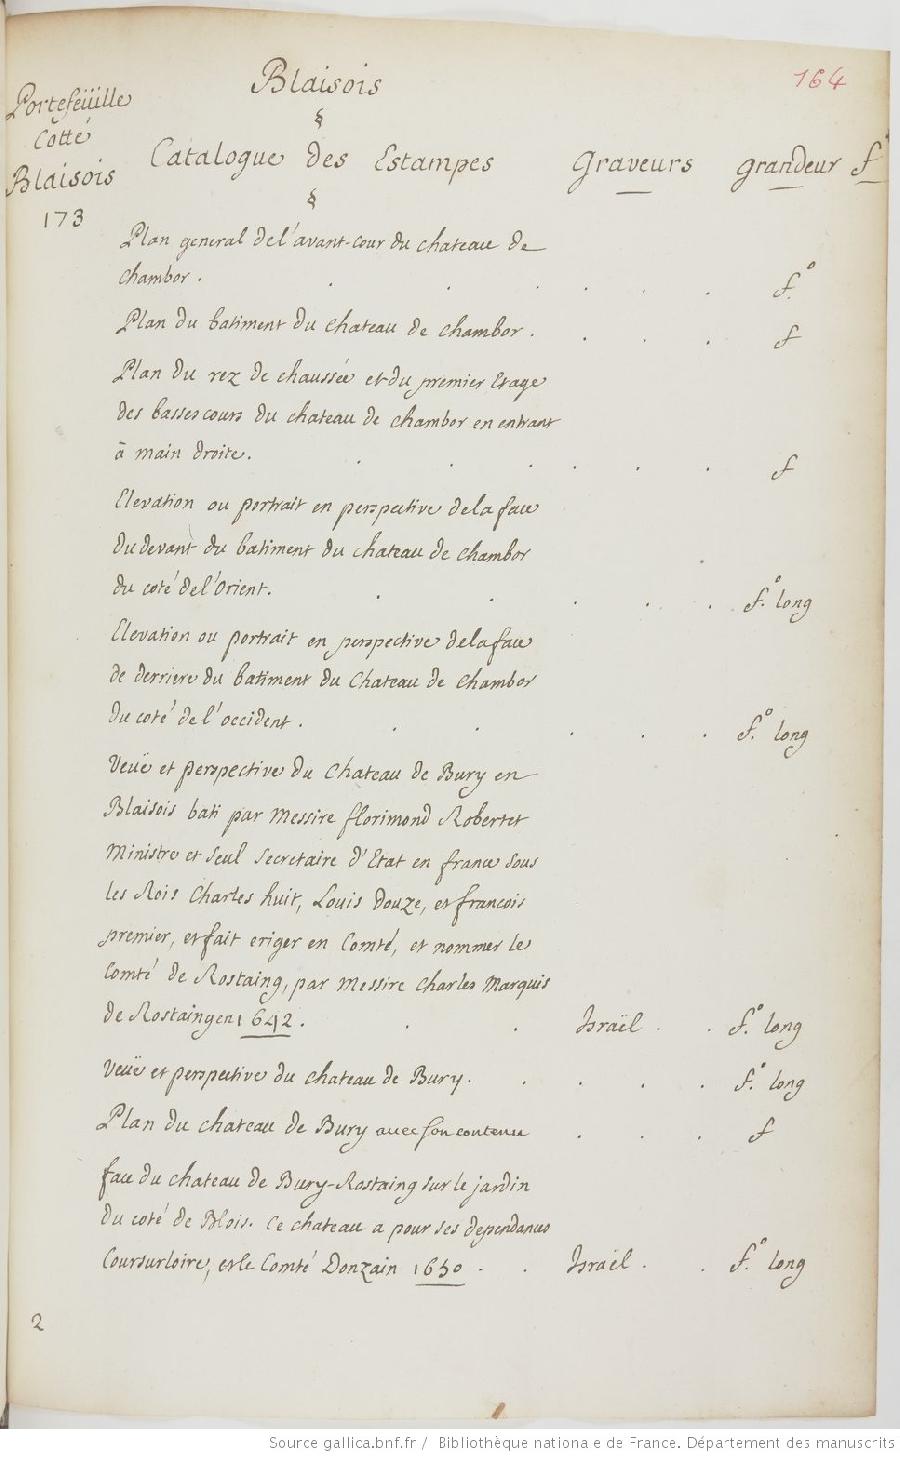 Blaisois
164
Portefeüille
Cotté
Blaisois
173
§
Catalogue des Estampes Graveurs grandeur f.º
§
Plan general del'avant-cour du chateau de
chambor . f.º
Plan du batiment du chateau de chambor . f
Plan du rez de chaussée et du premier Etage
des basses cours du chateau de chambor en entrant
à main droite . f
Elevation ou portrait en perspective dela face
du devant du batiment du chateau de chambor
du coté del'Orient . f.º long
Elevation ou portrait en perspective dela face
de derriere du batiment du Chateau de chambor
du coté de l'occident . f.º long
Veüe et perspective du Chateau de Bury en
Blaisois bati par Messire florimond Robertet
Ministre et seul secretaire d'Etat en france sous
les Rois Charles huit, Louis Douze, et francois
premier, et fait eriger en Comté, et nommer le
Comté de Rostaing, par Messire Charles Marquis
de Rostaing en 1642 . Israël . f.º long
Veüe et perspective du chateau de Bury . f.º long
Plan du chateau de Bury avec son contenu . f
face du chateau de Bury-Rostaing sur le jardin
du coté de Blois. Ce chateau a pour ses dependances
Coursurloire, et le Comté Donzain 1650 . Israël . f.º long
2
Source gallica.bnf.fr / Bibliothèque nationale de France. Département des manuscrits